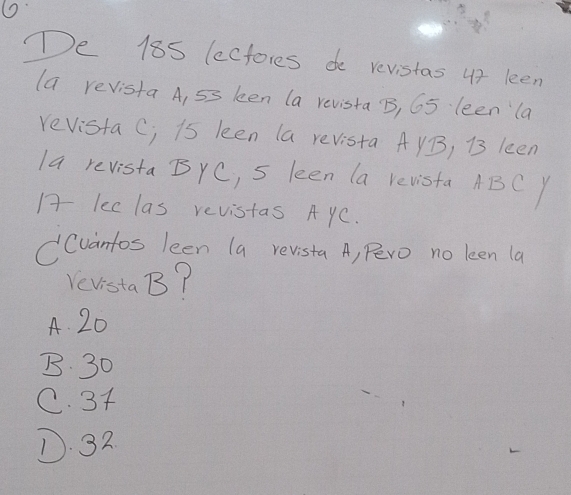 6.
De 185 lectores de revistas 47 leen
la revista A, 53 leen la revista B, 65 leen la
revista C, 15 leen la revista A y B, 13 leen
la revista B y C, 5 leen la revista ABC y
17 lee las revistas A y C.
¿Cuántos leen la revista A, Pero no leen la
revista B?
A. 20
B. 30
C. 37
D. 32